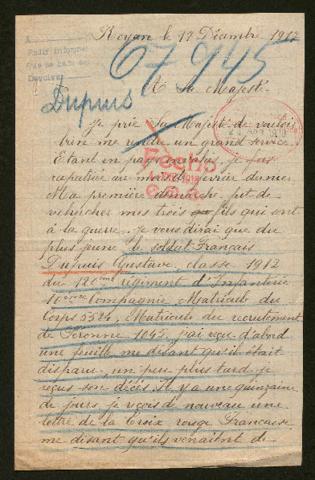 Royan le 17 Décembre 1917
67945
Dupuis
A Sa Majesté
Je prie Sa Majesté de vouloir
bien me rendre un grand service
Etant en pays envahis, je fus
rapatriée au mois de février dernier
Ma première démarche fut de
rechercher mes trois fils qui sont
à la guerre. Je vous dirai que du
plus jeune le soldat Français
Dupuis Gustave, classe 1912
du 120ème régiment d'Infanterie
10ème Compagnie Matricule du
Corps 5524, Matricule du recrutement
de Péronne 1045. j'ai reçu d'abord
une feuille me disant qu'il était
disparu, un peu plus tard je
reçus son décès. Il y a une quinzaine
de jours je reçois de nouveau une
lettre de la Croix rouge Française
me disant qu'ils venaient de